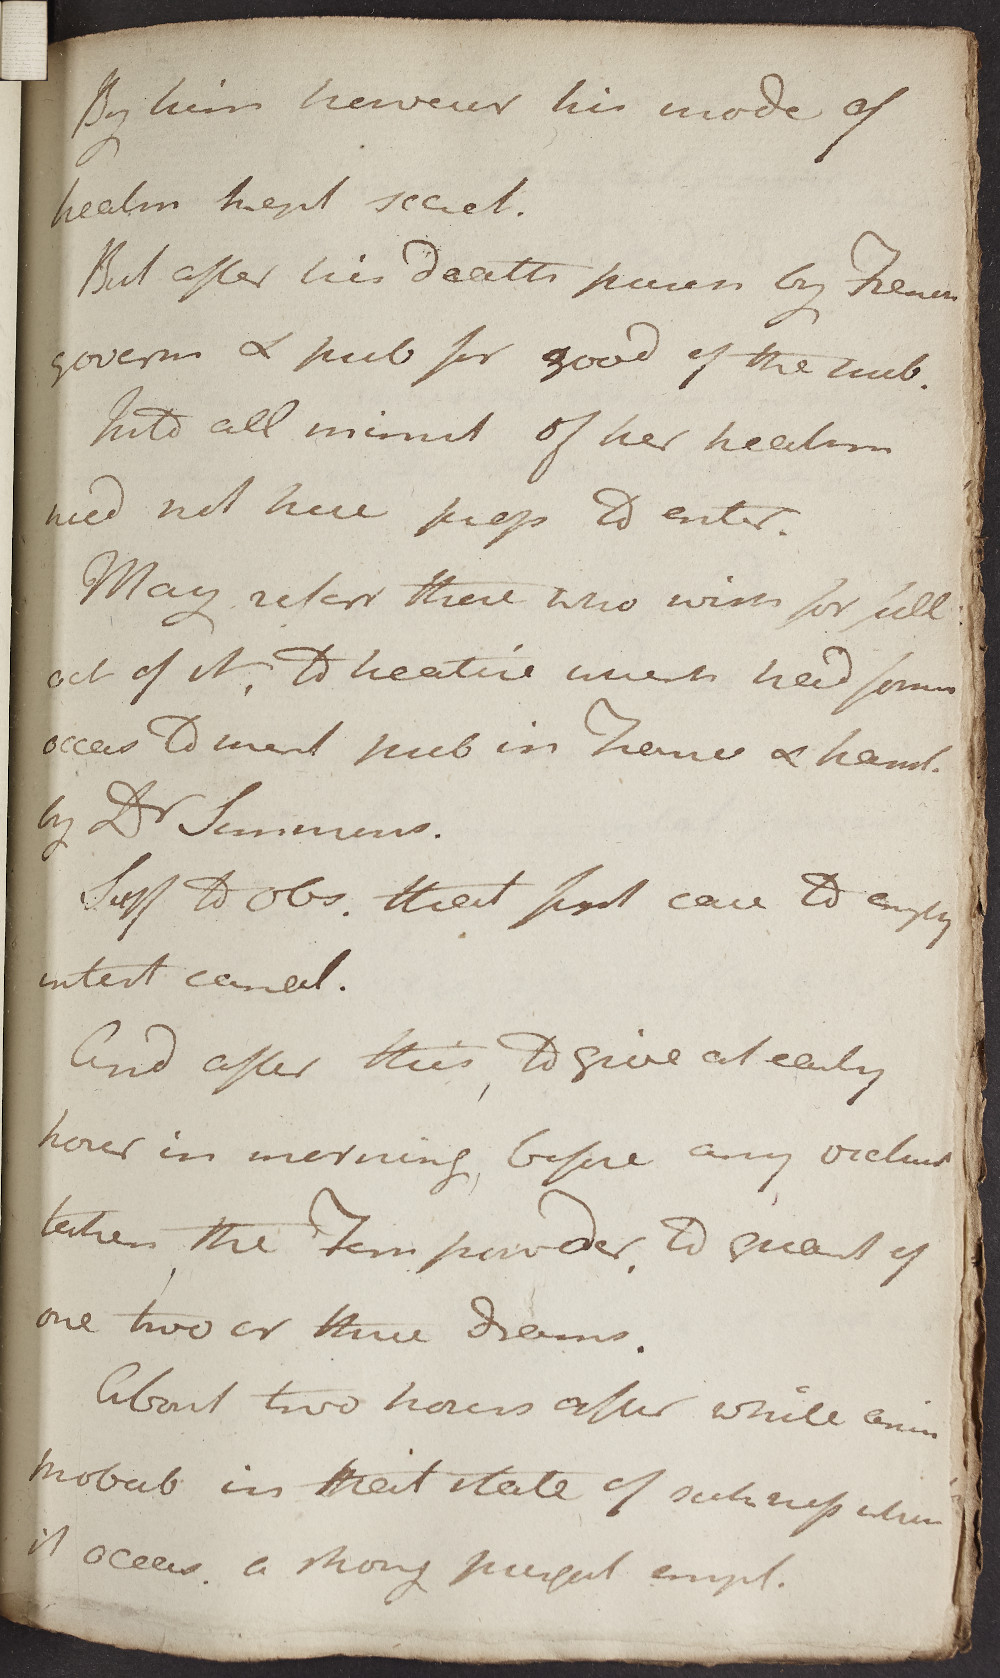 By him however his mode of
healm kept secret.
But after his death purch by French
governm & pub for good of the pub.
Into all minut of her healm
need not here prop to enter.
May refer those who wish for full
act of it, to treatise which had form
occas to ment pub in France & transl.
by Dr Simmons.
Suff to obs. that first care to empty
intest canal.
And after this, to give at early
hour in morning, before any victual
taken, the Fern powder, to quant of
one two or three drams.
About two hours after while anim
probab in that state of sickness which
it occas. a strong purgat empl.